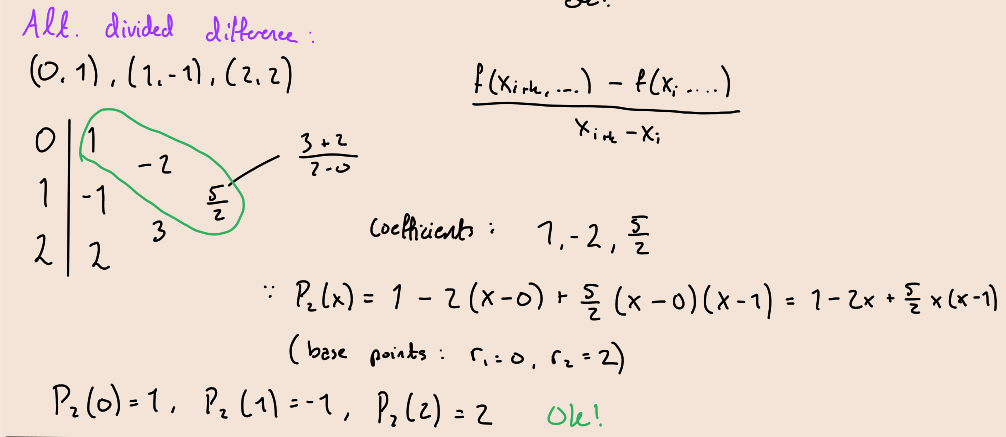 Alt. divided difference:
(0,1), (1,-1), (2,2)
f(x_{i+k},....) - f(x_i ....)
x_{i+k} - x_i
0 | 1
-2
3+2
2-0
1 | -1
5/2
3
2 | 2
Coefficients: 1, -2, 5/2
∵ P₂(x) = 1 - 2(x-0) + 5/2 (x-0)(x-1) = 1-2x + 5/2 x(x-1)
(base points: r₁=0, r₂=2)
P₂(0)=1, P₂(1)=-1, P₂(2)=2 Ok!